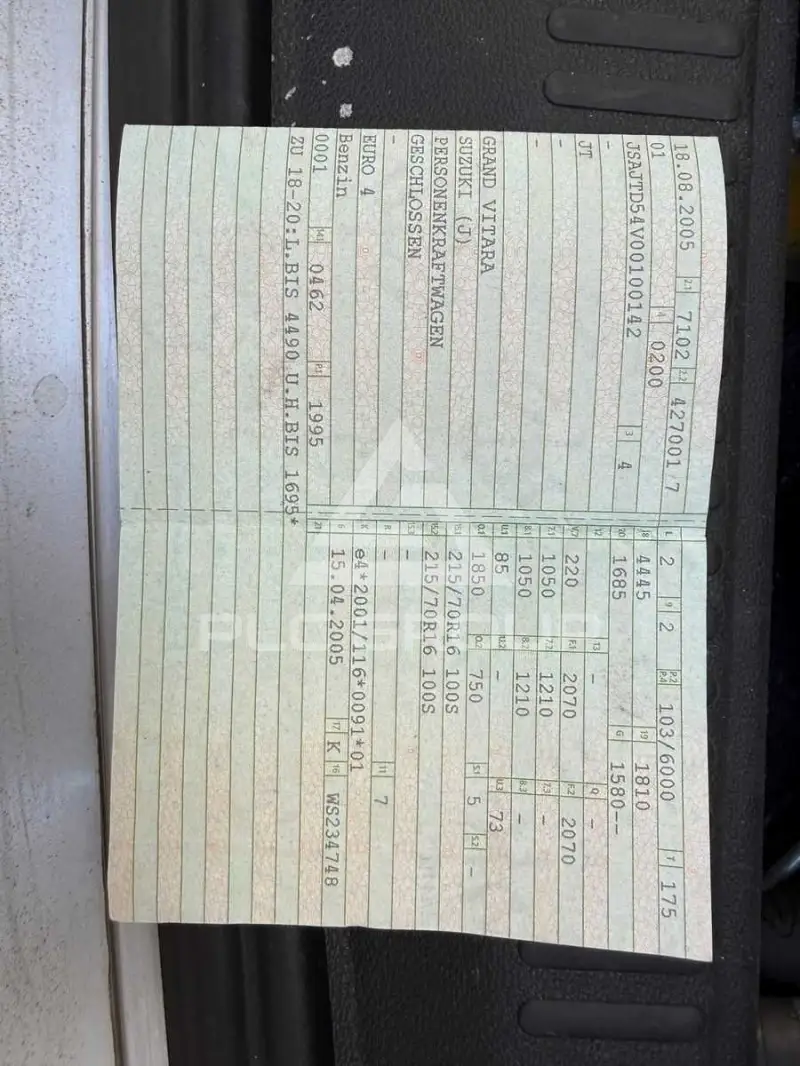 18.08.2005 2.1 7102 2.2 427001 7
01 4 0200
JSAJTD54V00100142 3 4
-
JT
-
-
GRAND VITARA
SUZUKI (J)
PERSONENKRAFTWAGEN
GESCHLOSSEN
-
EURO 4
Benzin
0001 14.1 0462 P.1 1995
ZU 18-20:L.BIS 4490 U.H.BIS 1695*
L 2 9 2 P.2 P.4 103/6000 T 175
18 4445 19 1810
20 1685 G 1580--
12 13 - Q -
V.7 220 F.1 2070 F.2 2070
7.1 1050 7.2 1210 7.3 -
8.1 1050 8.2 1210 8.3 -
U.1 85 U.2 - U.3 73
O.1 1850 O.2 750 S.1 5 S.2 -
15.1 215/70R16 100S
15.2 215/70R16 100S
15.3 -
R - 11 7
K e4*2001/116*0091*01
6 15.04.2005 17 K 16 WS234748
21
PLC GROUP